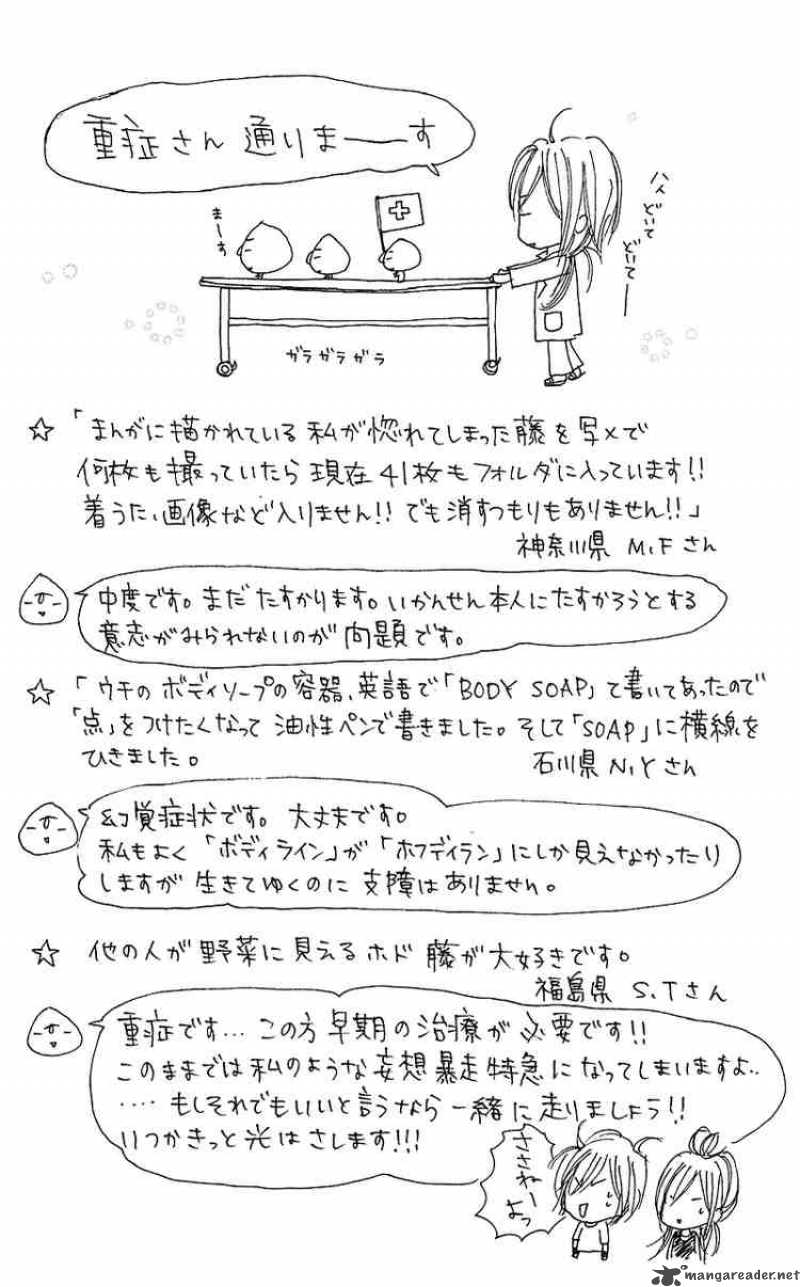 重症さん 通りまーーす
ハイ どいて
どいてー
まーす
ガラガラガラ
☆ 「まんがに描かれている私が惚れてしまった藤を写メで
何枚も撮っていたら現在41枚もフォルダに入っています!!
着うた、画像など入りません!! でも消すつもりもありません!!」
神奈川県 M.Fさん
中度です。まだたすかります。いかんせん本人にたすかろうとする
意志がみられないのが問題です。
☆ 「ウチのボディソープの容器、英語で「BODY SOAP」て書いてあったので
「点」をつけたくなって油性ペンで書きました。そして「SOAP」に横線を
ひきました。
石川県 N.Yさん
幻覚症状です。大丈夫です。
私もよく「ボディライン」が「ホフディラン」にしか見えなかったり
しますが生きてゆくのに支障はありません。
☆ 他の人が野菜に見えるホド藤が大好きです。
福島県 S.Tさん
重症です… この方早期の治療が必要です!!
このままでは私のような妄想暴走特急になってしまいますよ..
‥‥もしそれでもいいと言うなら一緒に走りましょう!!
いつかきっと光はさします!!!
ささねー
よっ
mangareader.net